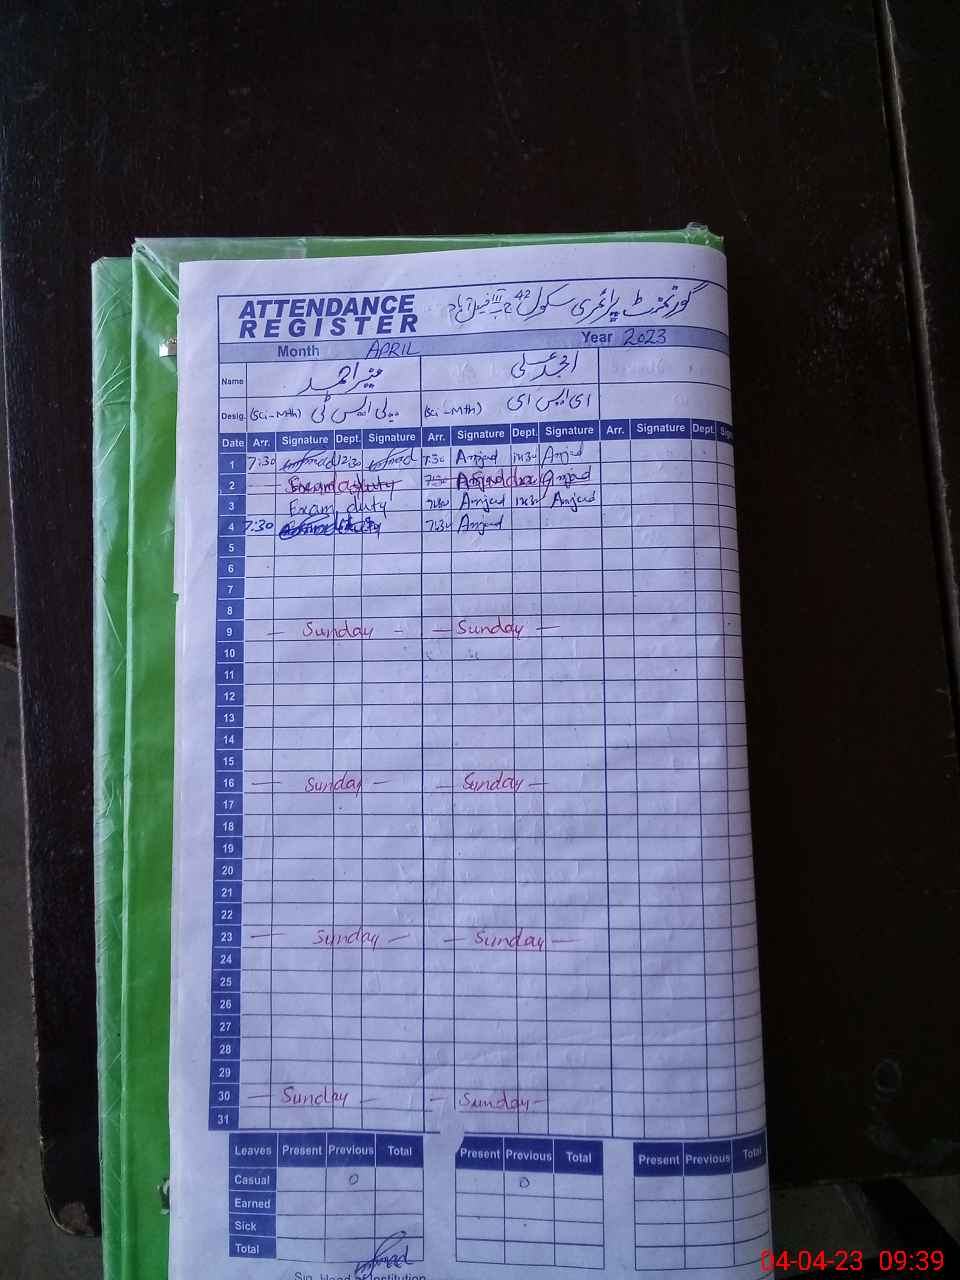 ATTENDANCE REGISTER
گورنمنٹ پرائمری سکول 42
Month APRIL Year 2023
Name منیر احمد امجد علی
Desig. (Sci-Mth) پی ایس ٹی (Sci-Mth) ای ایس ای
Date Arr. Signature Dept. Signature Arr. Signature Dept. Signature Arr. Signature Dept.
1 7:30 12:30 7:30 Amjad Amjad
2 Exam duty Amjad Amjad
3 Exam duty Amjad Amjad
4 7:30 7:30 Amjad
5
6
7
8
9 — Sunday - — Sunday —
10
11
12
13
14
15
16 — Sunday — - Sunday —
17
18
19
20
21
22
23 — Sunday — — Sunday —
24
25
26
27
28
29
30 — Sunday - - Sunday -
31
Leaves Present Previous Total Present Previous Total Present Previous Total
Casual 0 0
Earned
Sick
Total
04-04-23 09:39